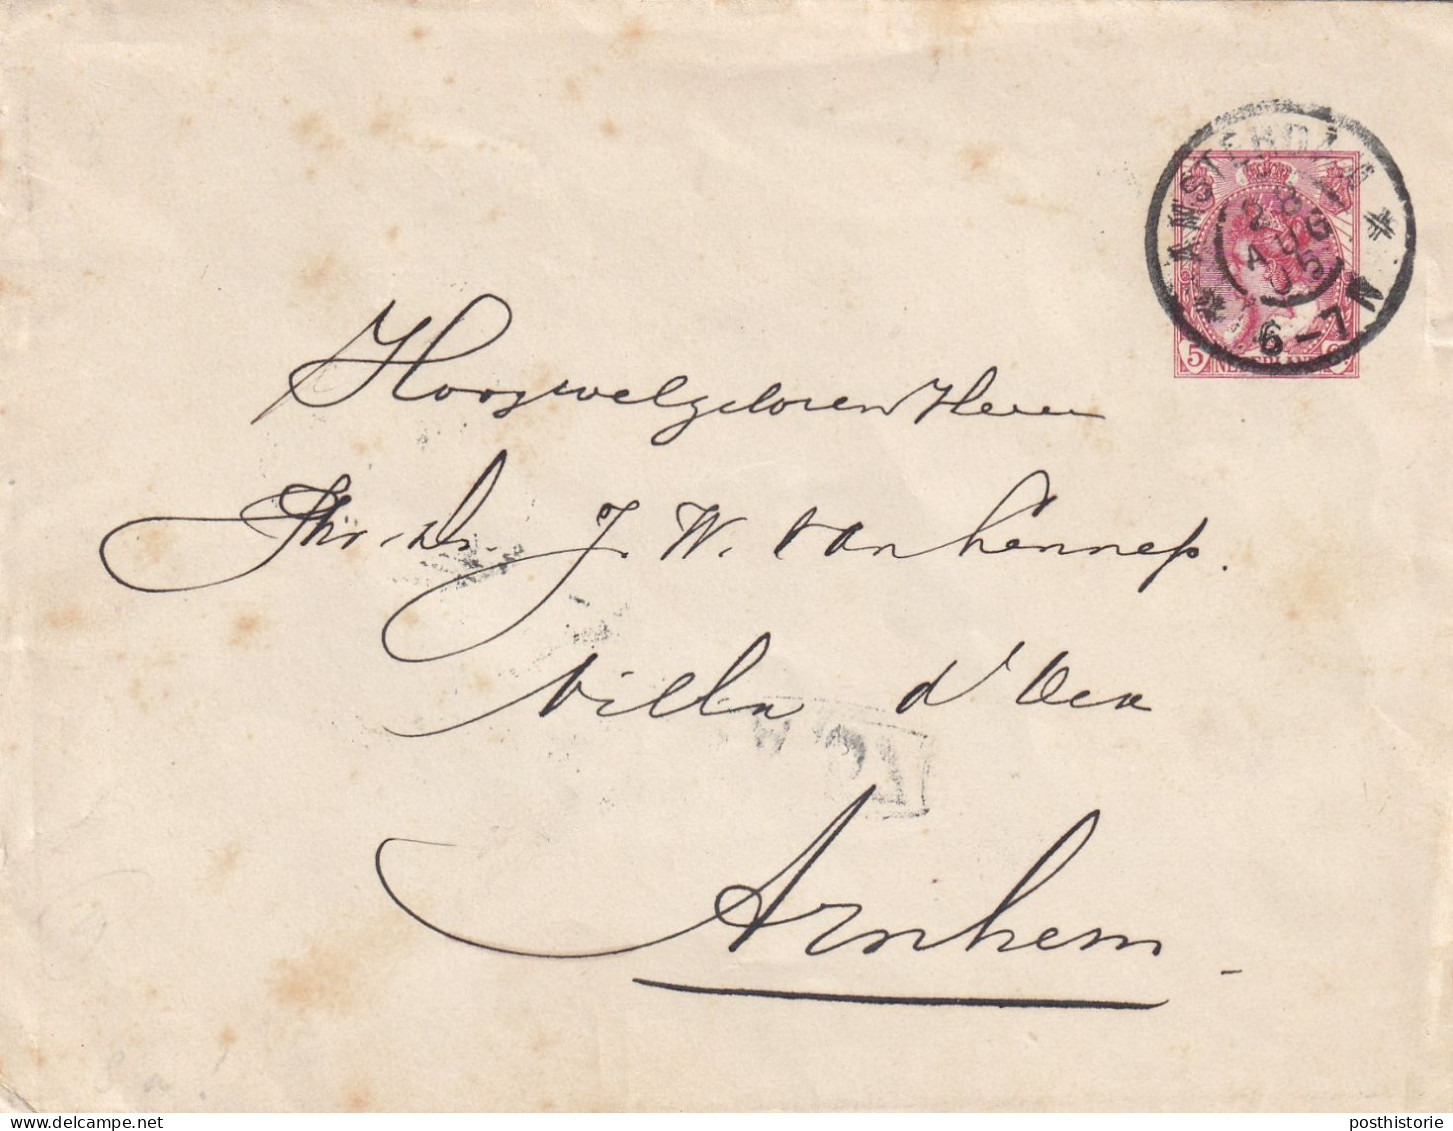 AMSTERDAM
28
AUG
05
6-7 N
5 NEDERLAND
Hoogwelgeboren Heer
Jhr. Dr. J. W. van Hennep.
Villa d'
Arnhem
delcampe.net
posthistorie